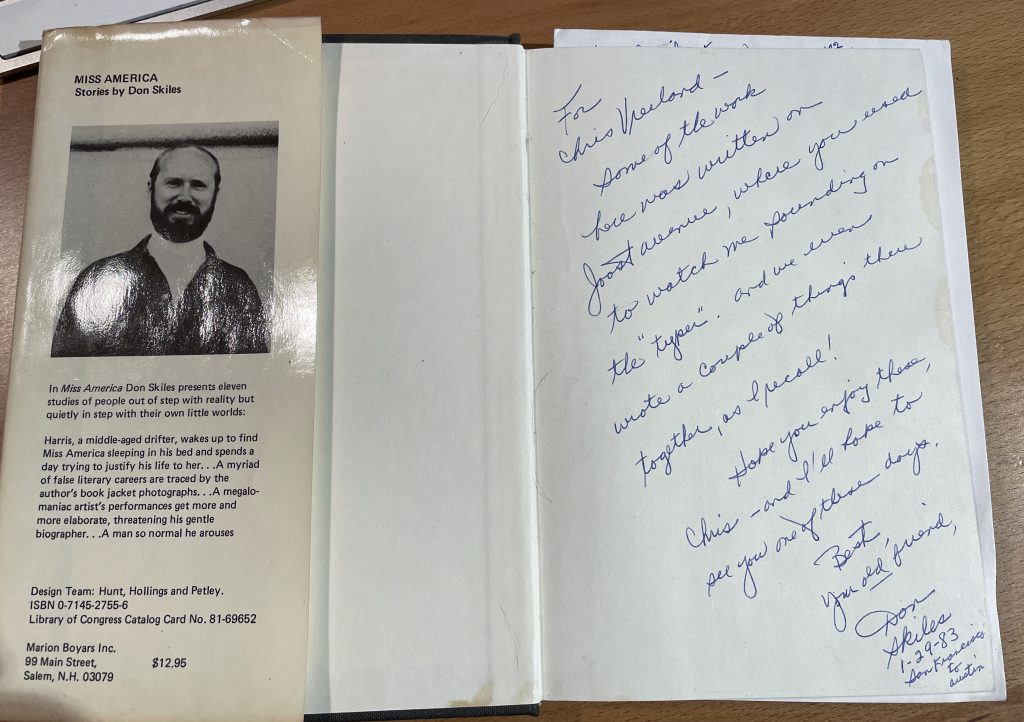 MISS AMERICA
Stories by Don Skiles
In Miss America Don Skiles presents eleven
studies of people out of step with reality but
quietly in step with their own little worlds:
Harris, a middle-aged drifter, wakes up to find
Miss America sleeping in his bed and spends a
day trying to justify his life to her. . .A myriad
of false literary careers are traced by the
author's book jacket photographs. . .A megalo-
maniac artist's performances get more and
more elaborate, threatening his gentle
biographer. . .A man so normal he arouses
Design Team: Hunt, Hollings and Petley.
ISBN 0-7145-2755-6
Library of Congress Catalog Card No. 81-69652
Marion Boyars Inc.
99 Main Street, $12.95
Salem, N.H. 03079
For
Chris Vreeland —
Some of the work
here was written on
Joost avenue, where you used
to watch me pounding on
the "typer". And we even
wrote a couple of things there
together, as I recall!
Hope you enjoy these,
Chris — and I'll hope to
see you one of these days.
Best,
your old friend,
Don
Skiles
1-29-83
San Francisco
to
Austin